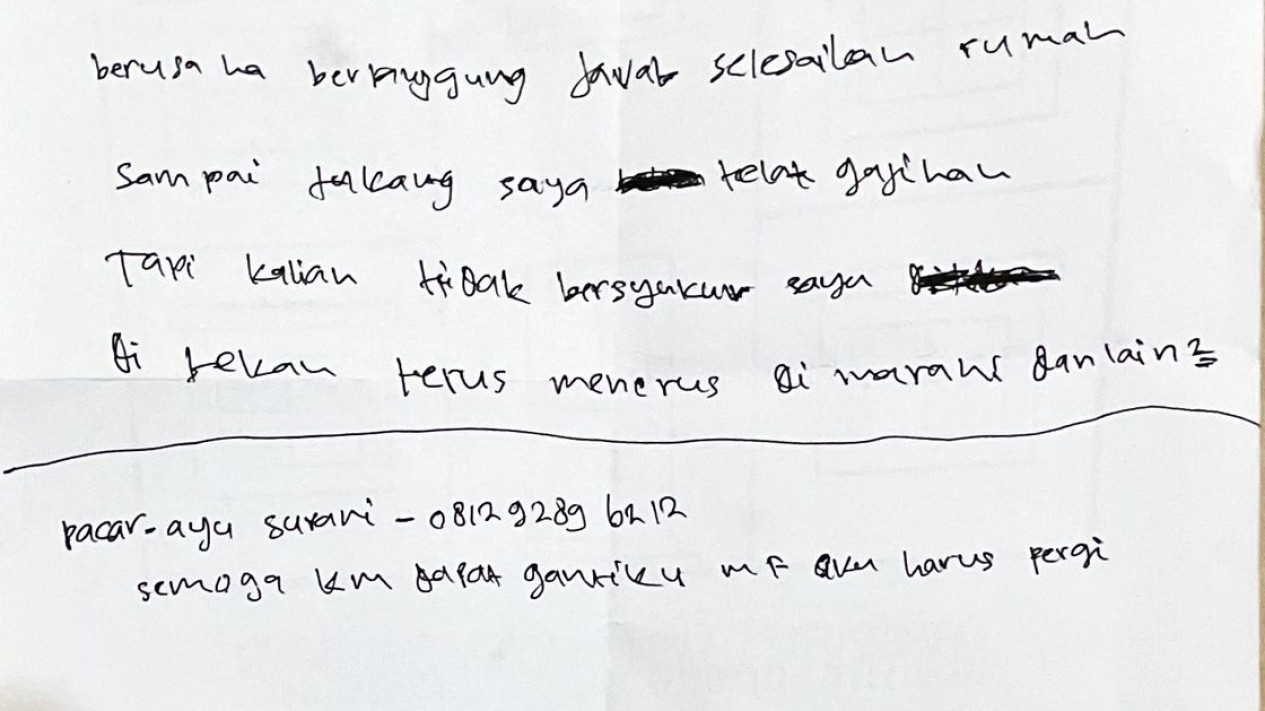 berusaha bertanggung Jawab selesaikan rumah
Sampai tukang saya telat gajihan
Tapi kalian tidak bersyukur saya
di tekan terus menerus di marahi dan lain2
pacar-ayu surani - 081292896212
semoga km dapat gantiku mf aku harus pergi